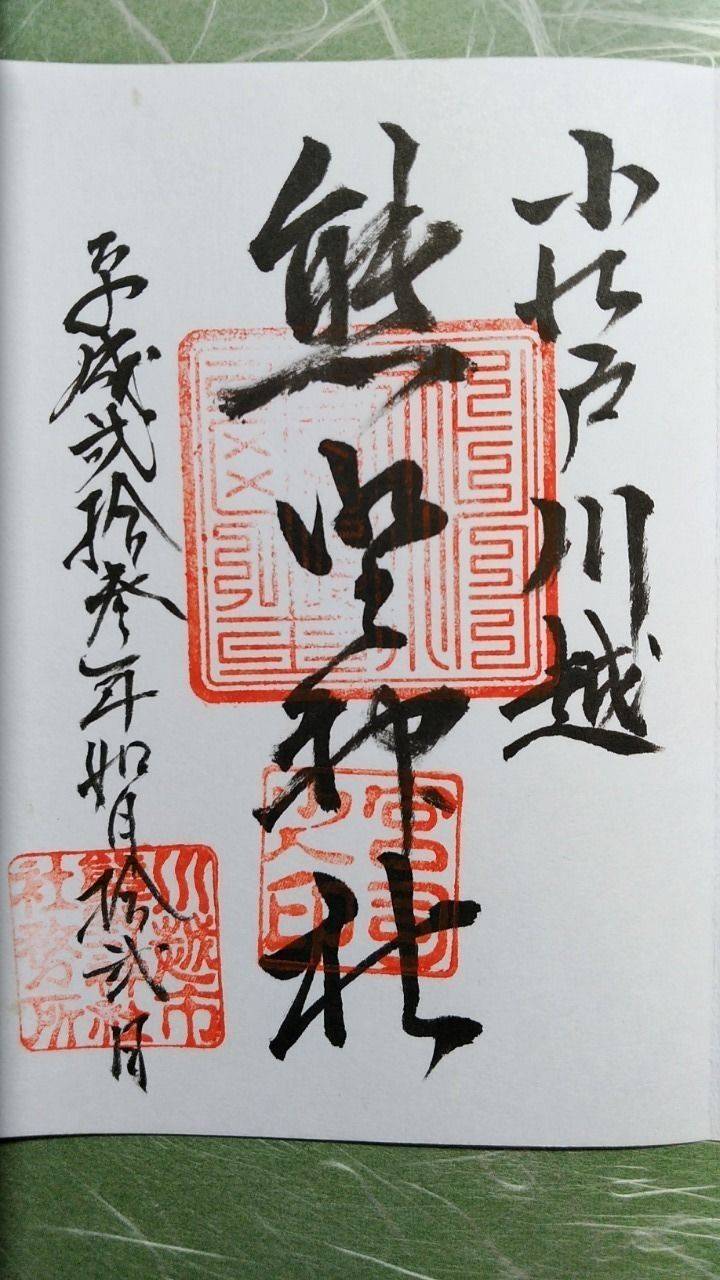 小江戸川越
熊野神社
平成弐拾参年如月拾弐日
宮司
之印
川越市
熊野神社
社務所